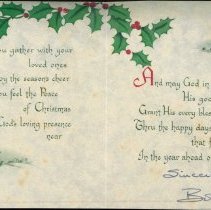 ou gather with your
loved ones
y the seasons cheer
ou feel the Peace
of Christmas
God's loving presence
near
And may God in
His goo
Grant His every bless
Thru the happy days
that
In the year ahead o
Sincer
B